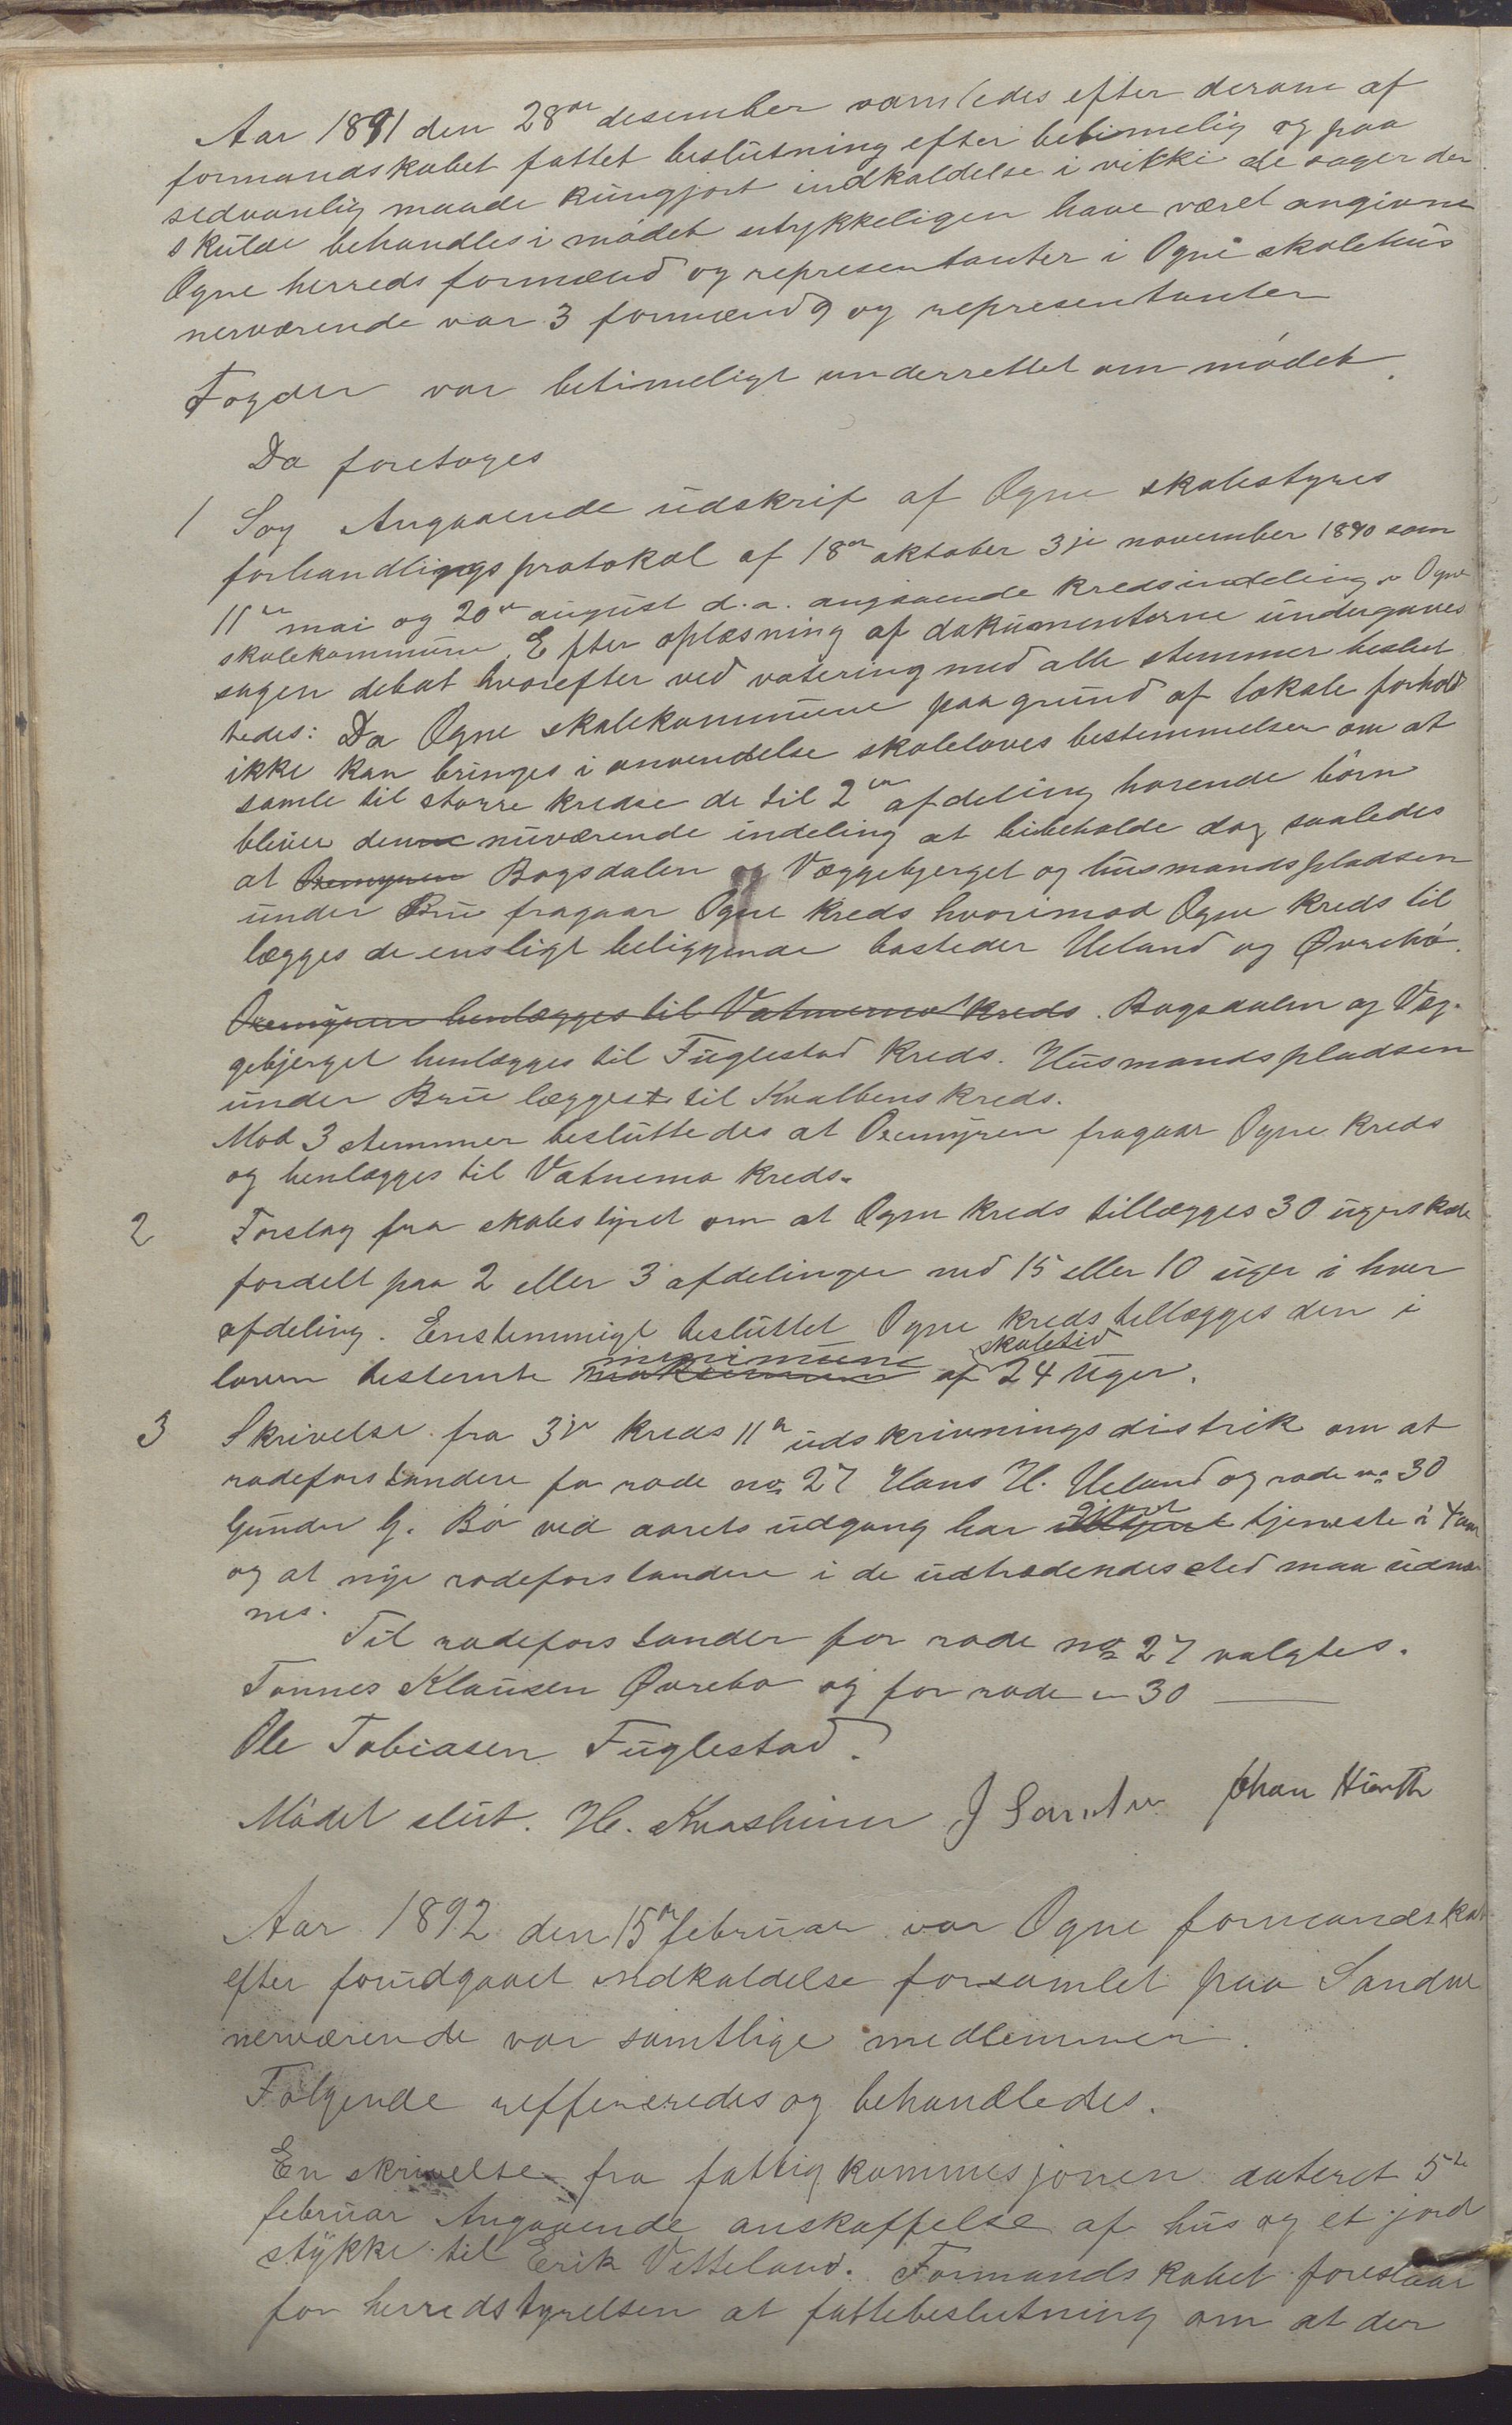 Aar 1891 den 28de desember samledes efter derom af
formandskabet fattet beslutning efter betimelig og paa
sedvanlig maade kungjort indkaldelse i vikke de sager der
skulde behandles i mödet utrykkeligen have været angivne
Ogne herreds formænd og representanter i Ogne skolehus
nerværende var 3 formænd 9 og representanter
Fogden var betimeligt underrettet om mödet.
Da foretoges
1 Sag Angaaende udskrif af Ogne skolestyres
forhandlings protokol af 18de oktober 3je november 1890 som
11te mai og 20de august d.a. angaaende kredsindeling i Ogne
skolekommune. Efter oplæsning af dokumenterne undergaves
sagen debat hvorefter ved votering med alle stemmer beslut
tedes: Da Ogne skolekommune paa grund af lokale forhold
ikke kan bringes i anvendelse skoleloves bestemmelser om at
samle til större kredse de til 2den afdeling hörende börn
bliver den nuværende indeling at bibeholde dog saaledes
at Oremyren Bogsdalen og Væggebjerget og husmandspladsen
under Bru fragaar Ogne kreds hvorimod Ogne kreds til
lægges de ensligt beliggende bosteder Ueland og Øvrebö.
Oremyren henlægges til Vatnemo kreds. Bogsdalen og Væg-
gebjerget henlægges til Fuglestad kreds. Husmandspladsen
under Bru lægges til Kvalbens kreds.
Mod 3 stemmer besluttedes at Oremyren fragaar Ogne kreds
og henlægges til Vatnemo kreds.
2 Forslag fra skolestyret om at Ogne kreds tillægges 30 ugers skole
fordelt paa 2 eller 3 afdelinger med 15 eller 10 uger i hver
afdeling. Enstemmigt besluttet Ogne kreds tillægges den i
loven bestemte maksimum minimum af skoletid 24 uger.
3 Skrivelse fra 3je kreds 11te udskrivningsdistrik om at
rodeforstandere for rode no 27 Hans H. Ueland og rode no 30
Gunder G. Bö ved aarets udgang har gjort tjeneste i 4 aar
og at nye rodeforstandere i de udtrædendes sted maa udnæ
nes.
Til rodeforstander for rode no 27 valgtes.
Tönnes Klausen Øvrebö og for rode " 30 —
Ole Tobiasen Fuglestad.
Mödet slut. H. Kvasheim J Sandve Johan Hirth
Aar 1892 den 15de februar var Ogne formandskab
efter forudgaaet indkaldelse forsamlet paa Sandve
nerværende var samtlige medlemmer.
Fölgende reffereredes og behandledes.
En skrivelse fra fattigkommesjonen dateret 5te
februar Angaaende anskaffelse af hus og et jord
stykke til Erik Vetteland. Formandskabet foreslaar
for herredstyrelsen at fatte beslutning om at der